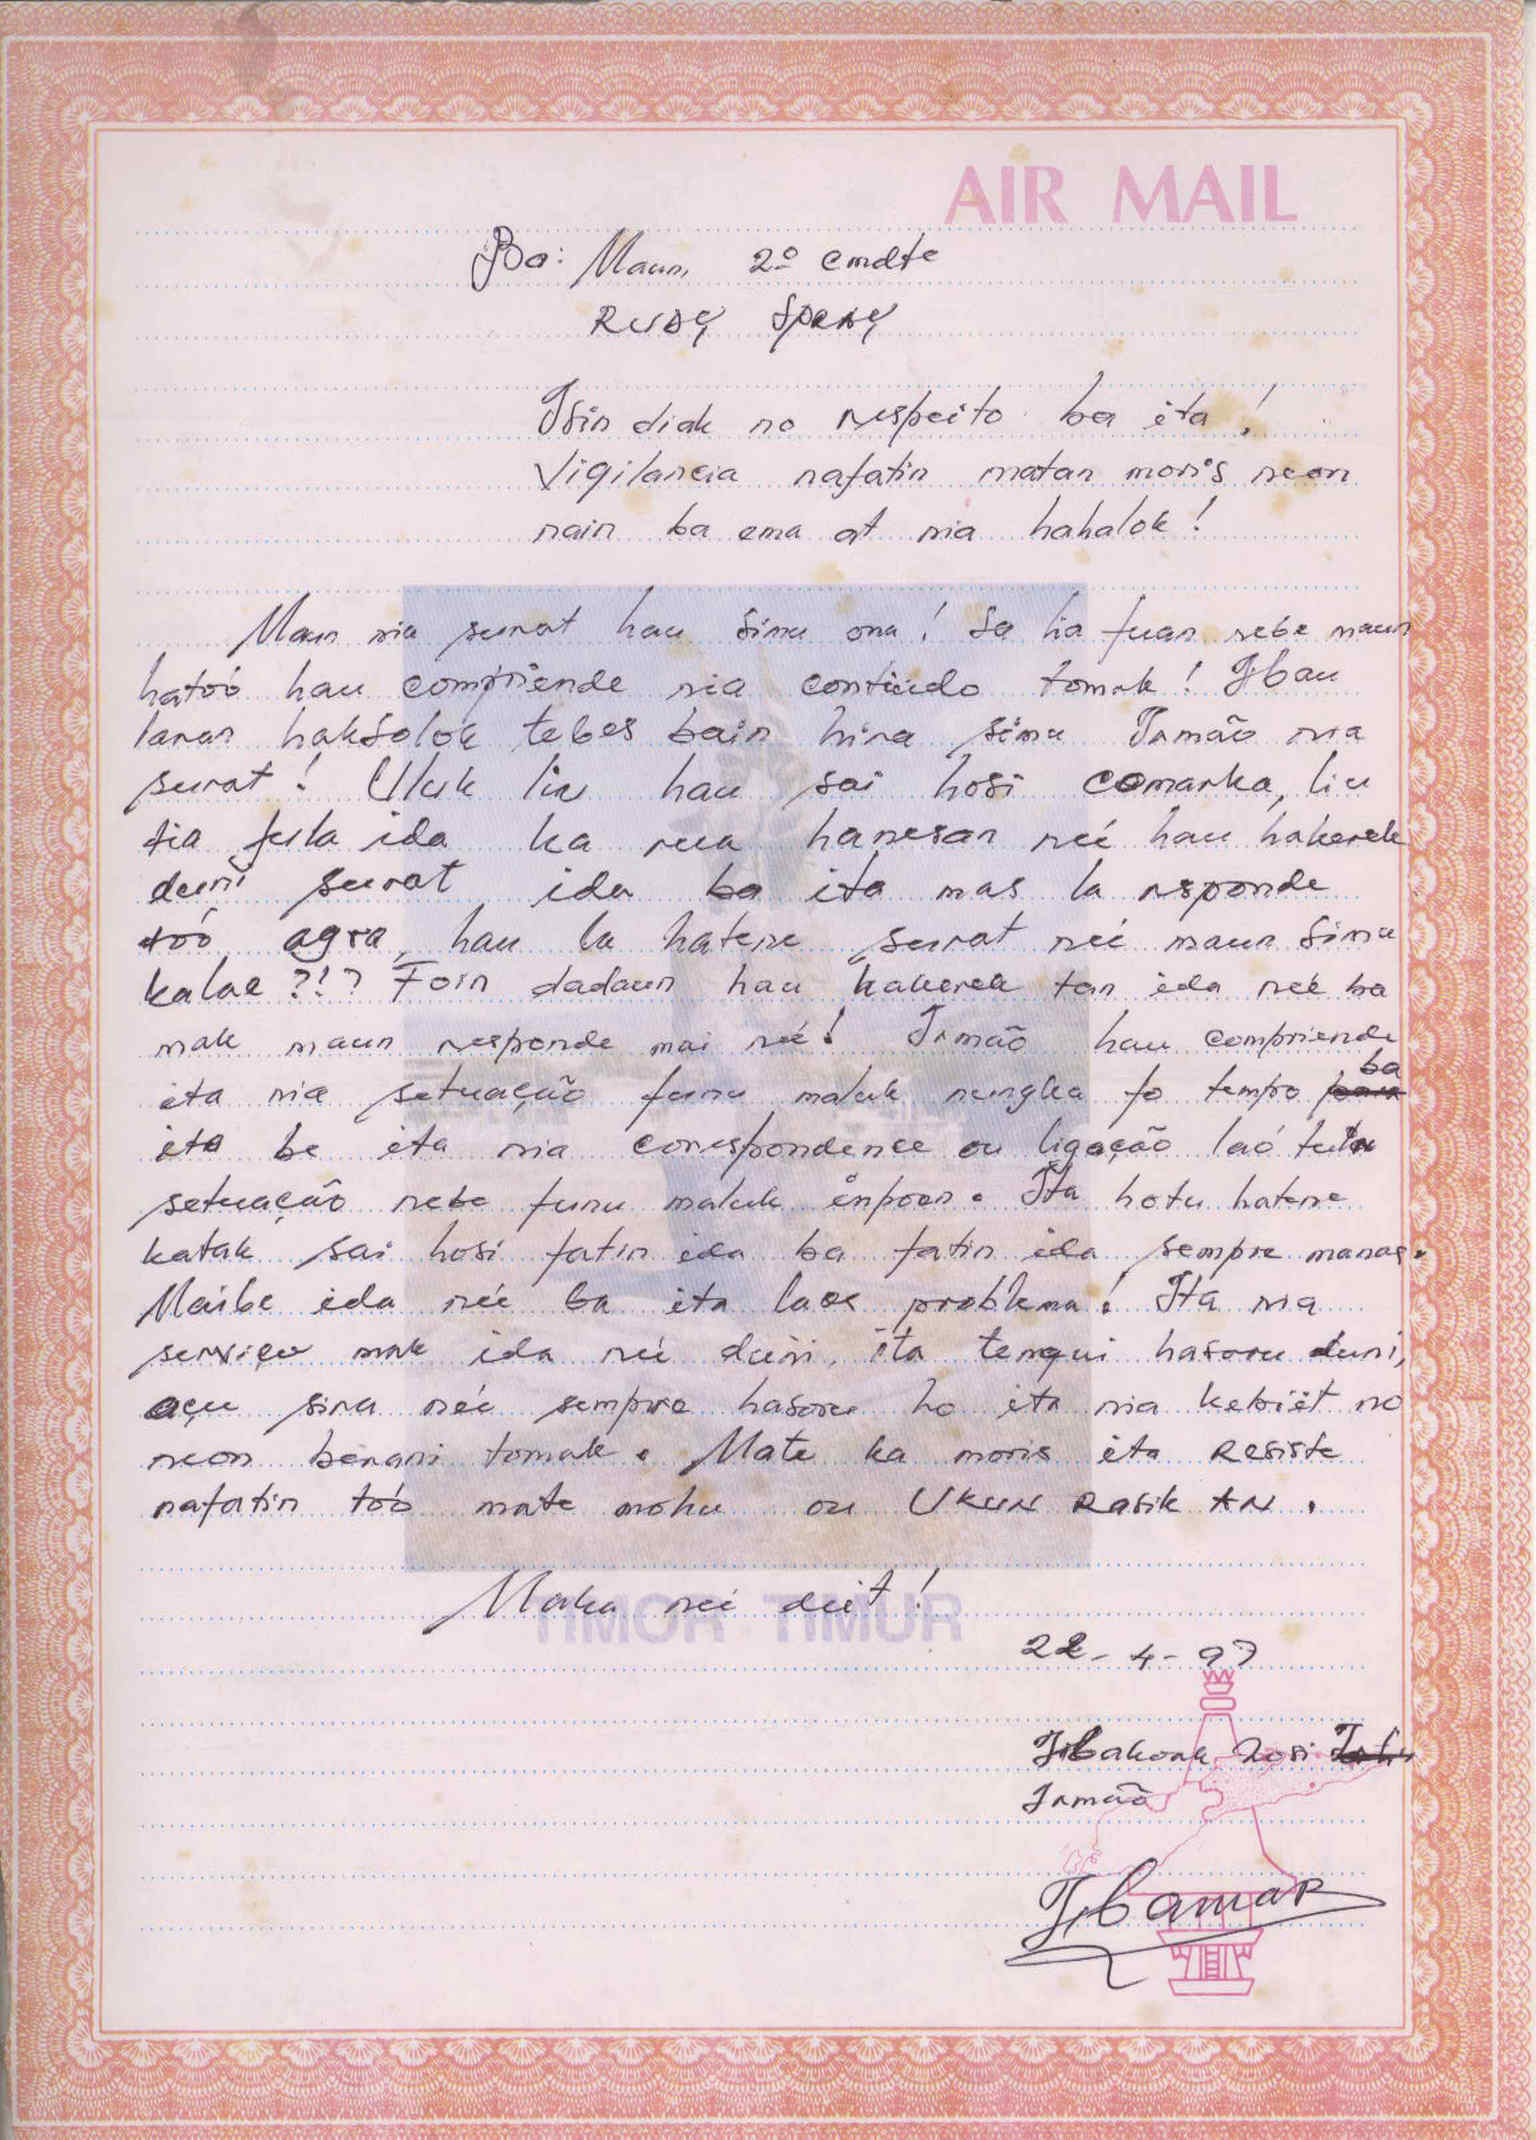 AIR MAIL
Ba: Maun 2º cmdte
RUDY SPERY
Isin diak no respeito ba ita!
Vigilancia nafatin matan moris neon
nain ba ema at nia hahalok!
Maun nia surat hau simu ona! Sa lia fuan nebe maun
hatoó hau compriende nia contiúdo tomak! Hau
laran haksolok tebes bain hira simu Irmão nia
surat! Uluk liu hau sai hosi comarka, liu
tia fula ida ka rua hanesan neé hau hakerek
duni surat ida ba ita mas la responde
toó agra, hau la hatene surat neé maun simu
kalae ?!? Foin dadaun hau hakerek tan ida neé ba
mak maun responde mai neé! Irmão hau compriende
ita nia setuação funu maluk nungka fo tempo ba
ita be ita nia correspondence ou ligação laó tuir
setuação nebe funu maluk inpoen. Ita hotu hatene
katak sai hosi fatin ida ba fatin ida sempre manas.
Maibe ida neé ba ita laos problema! Ita nia
serviçu mak ida neé duni, ita tenqui hasoru duni,
açu sira neé sempre hasoru ho ita nia kebiit no
neon berani tomak. Mate ka moris ita Resiste
nafatin toó mate mohu ou UKUN Rasik AN.
Maka neé deit!
TIMOR TIMUR
22-4-97
Hakoak hosi
Irmão